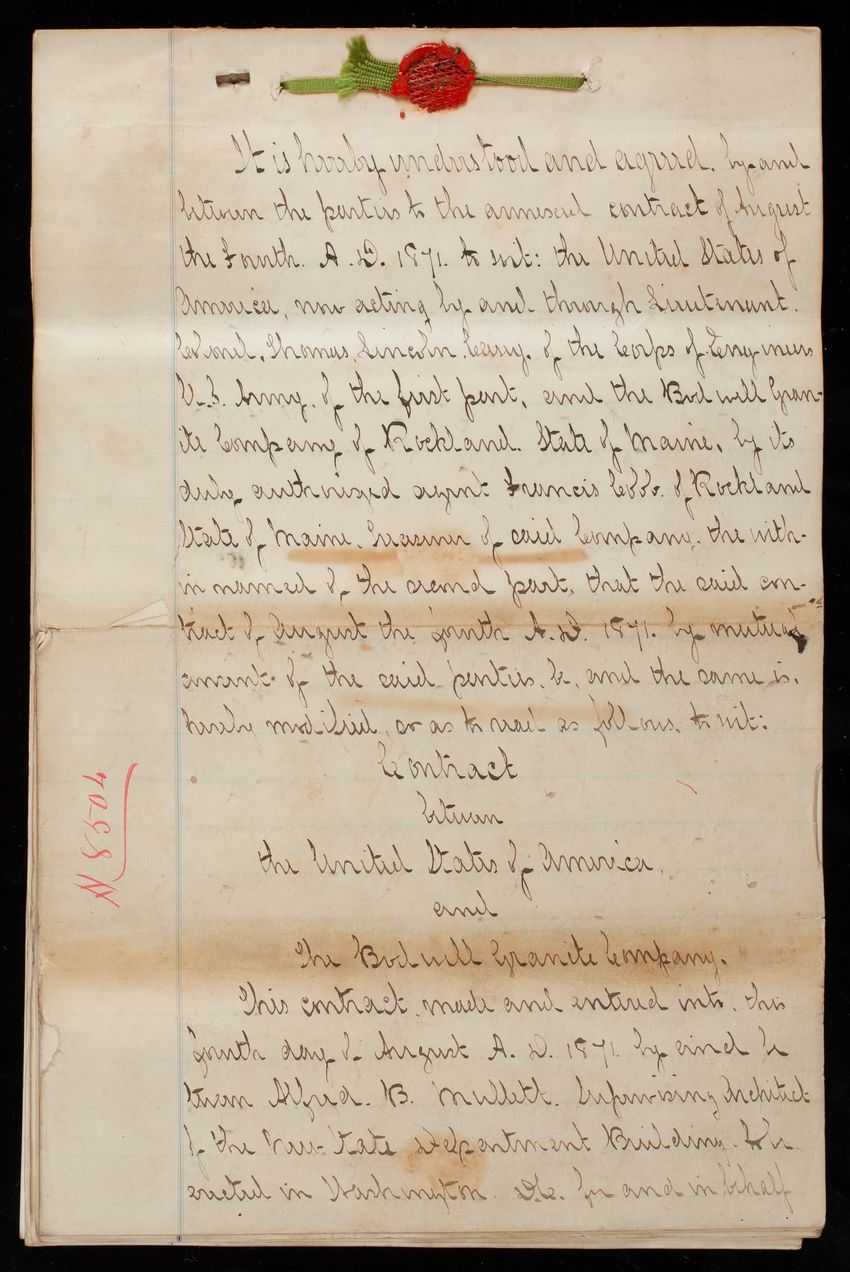 It is hereby understood and agreed, by and
between the parties to the annexed contract of August
the Fourth. A. D. 1871. to wit: the United States of
America, now acting by and through Lieutenant.
Colonel, Thomas, Lincoln, Casey, of the Corps of Engineers
U.S. Army, of the first part, and the Bodwell Gran-
ite Company of Rockland. State of Maine, by its
duly authorized agent Francis Cobb. of Rockland
State of Maine, Treasurer of said Company. the with-
in named of the second part, that the said con-
tract of August the fourth A. D. 1871. by mutual
consent of the said parties, be, and the same is,
hereby modified, so as to read as follows, to wit:
Contract
between
the United States of America,
and
The Bodwell Granite Company.
This contract, made and entered into, this
fourth day of August A. D. 1871. by and be
tween Alfred. B. Mullett. Supervising Architect
of the New State Department Building. to be
erected in Washington D.C. for and in behalf
8504